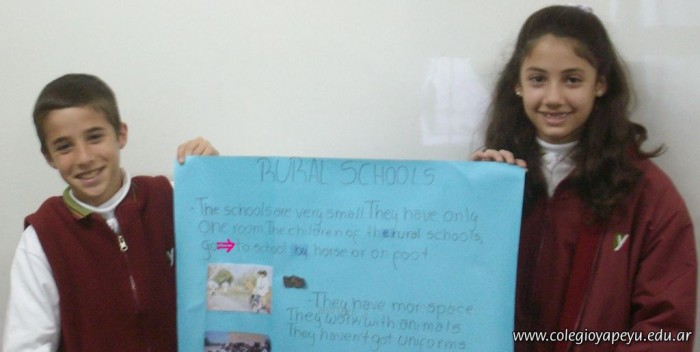 RURAL SCHOOLS
- The schools are very small They have only
one room. The children of the rural schools,
go to school by horse or on foot
- They have mor space
They work with animals
They haven't got unicorms
y
www.colegioyapeyu.edu.ar